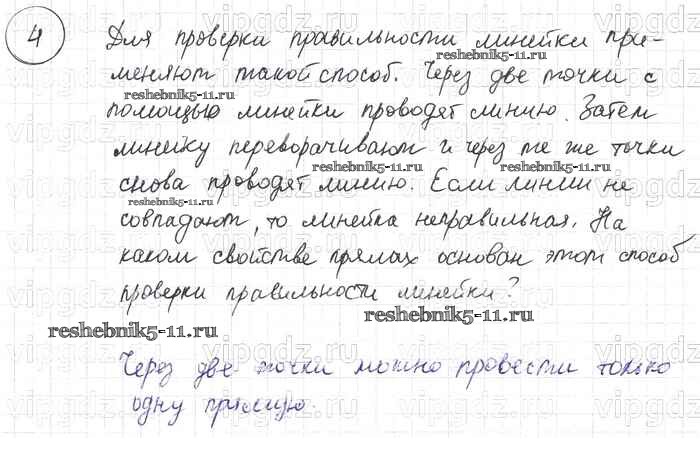 4 Для проверки правильности линейки при-
меняют такой способ. Через две точки с
reshebnik5-11.ru
reshebnik5-11.ru
помощью линейки проводят линию. Затем
линейку переворачивают и через те же точки
reshebnik5-11.ru
reshebnik5-11.ru
снова проводят линию. Если линии не
reshebnik5-11.ru
совпадают, то линейка неправильная. На
каком свойстве прямых основан этот способ
проверки правильности линейки?
reshebnik5-11.ru
reshebnik5-11.ru
Через две точки можно провести только
одну прямую.
vipgdz.ru